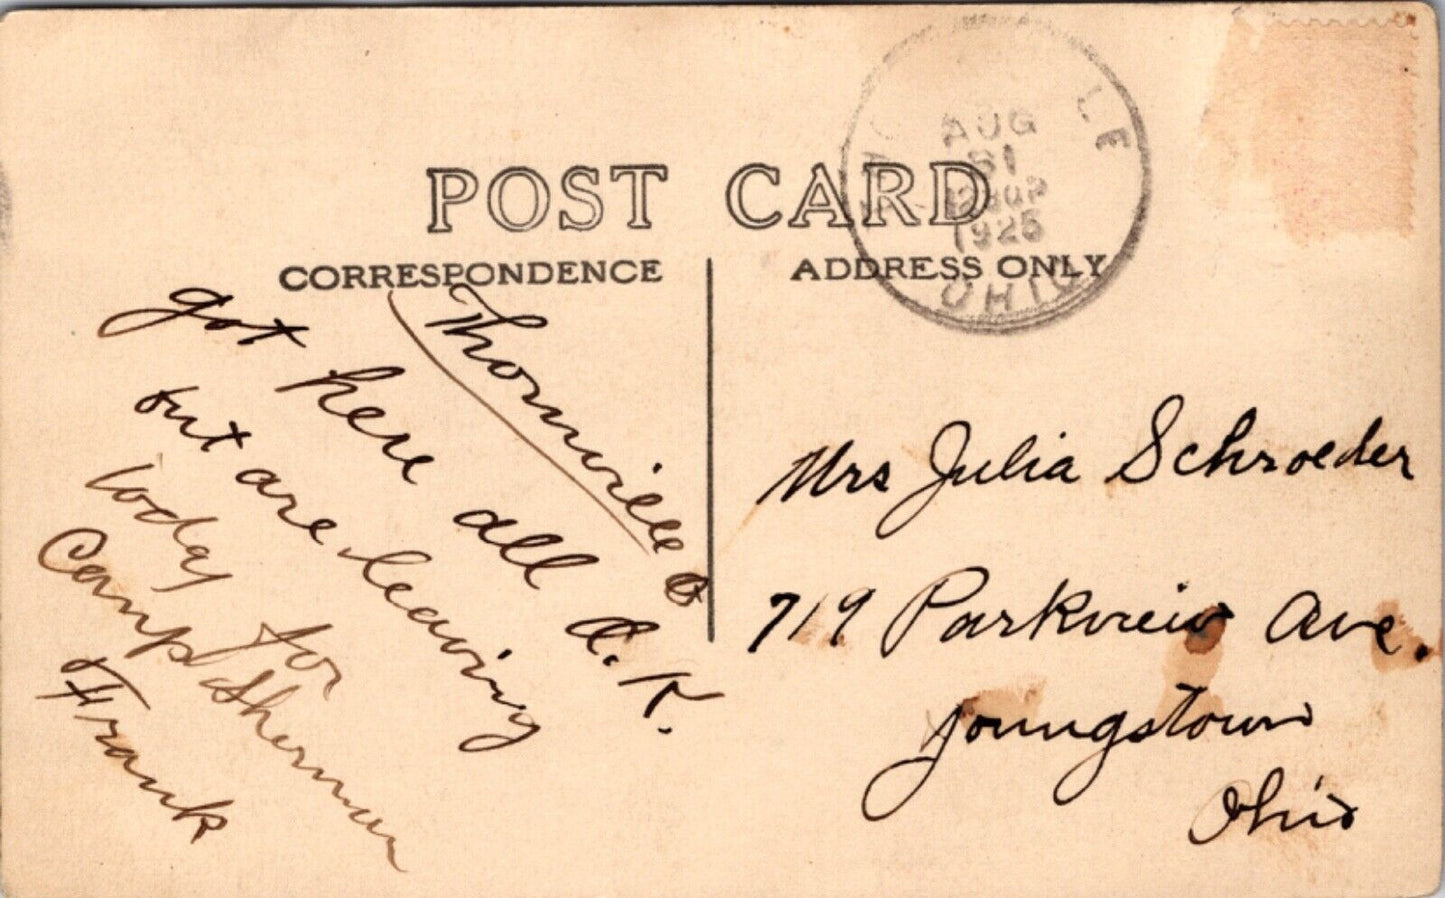 POST CARD
CORRESPONDENCE
ADDRESS ONLY
LE
AUG
31
1925
OHIO
Thornville O
got here all O.K.
but are leaving
today for
Camp Sherman
Frank
Mrs Julia Schroeder
719 Parkview Ave.
Youngstown
Ohio